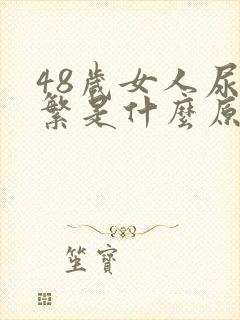 48歲女人尿
繁是什麼原
笙寶